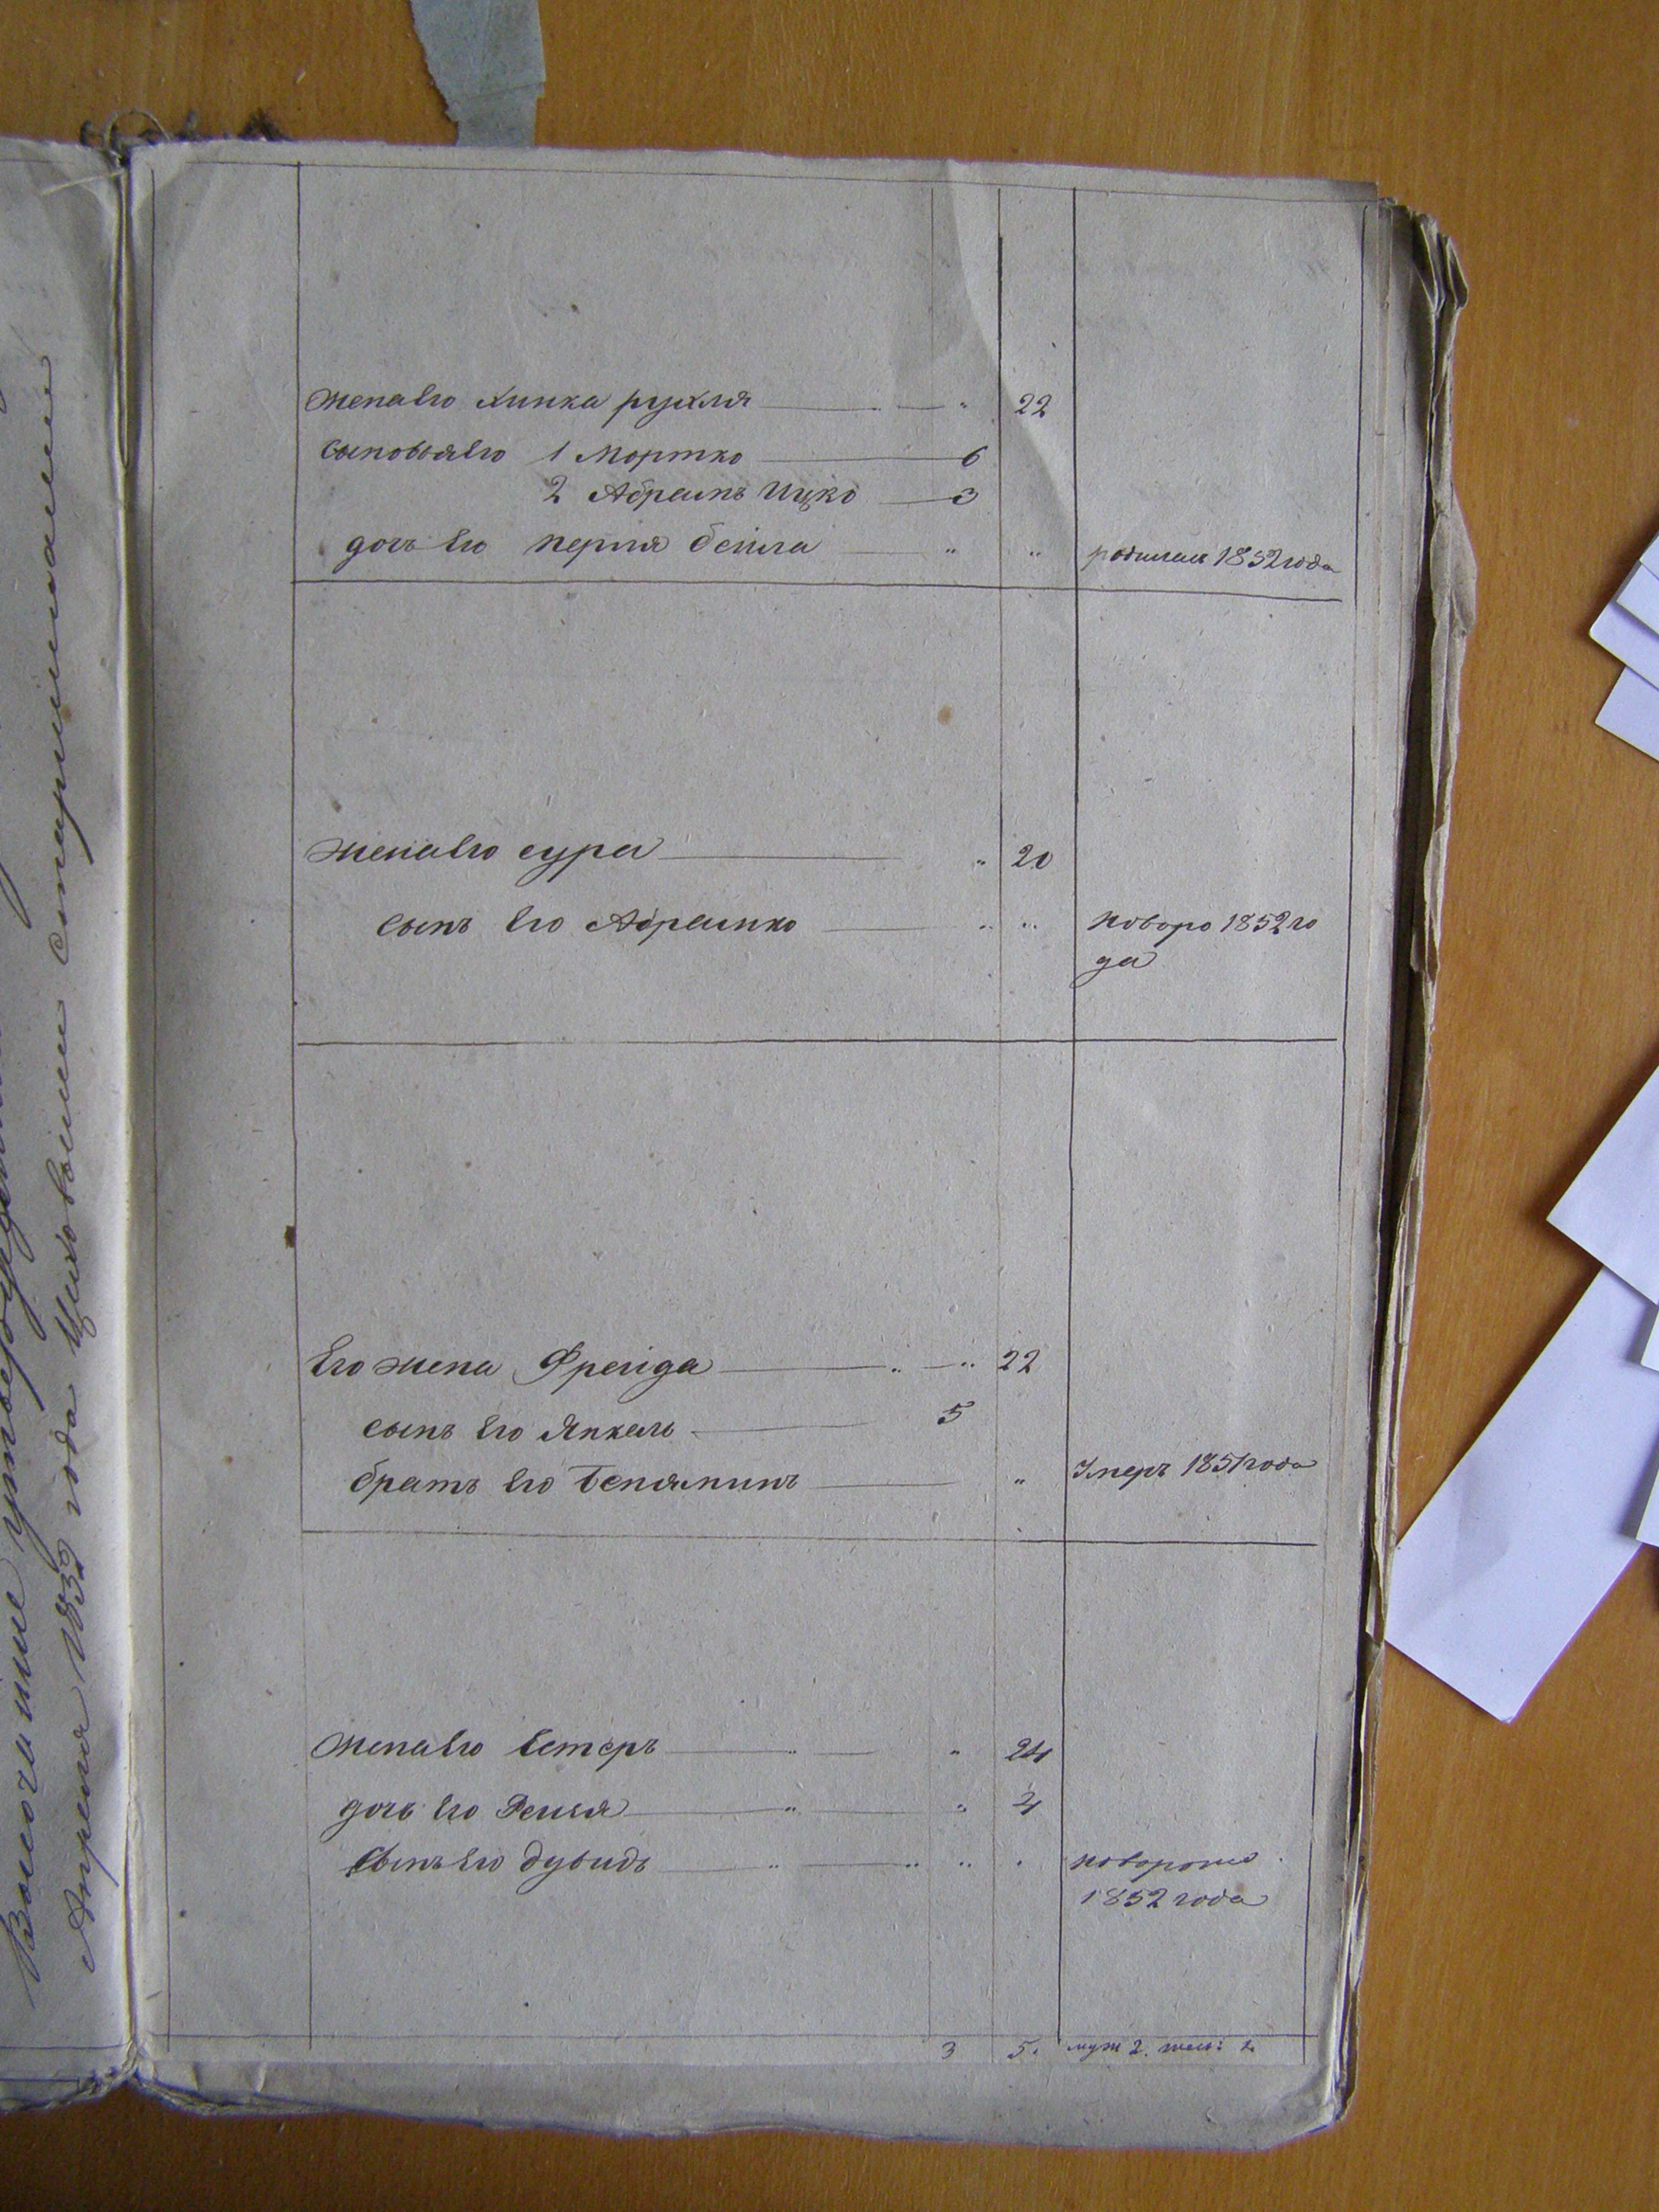 жена его хинка рухля — " 22
сыновья его 1 Мортко — 6
2 Абрамъ Ицко — 3
дочь его перля бейла — " " родилась 1852 года
жена его сура — " 20
сынъ его Абрамко — " " новоро 1852 го
да
Его жена Фрейда — " — " 22
сынъ его Янкель — 5
братъ его Беняминъ — " Умеръ 1851 года
жена его Естеръ — " — " 24
дочь его — " — " 4
сынъ его дувидъ — " — " " " новорожд
1852 года
3 5. муж 2. жен: 1
утвержденн
Апреля 1853 года Шиховыми старшинами